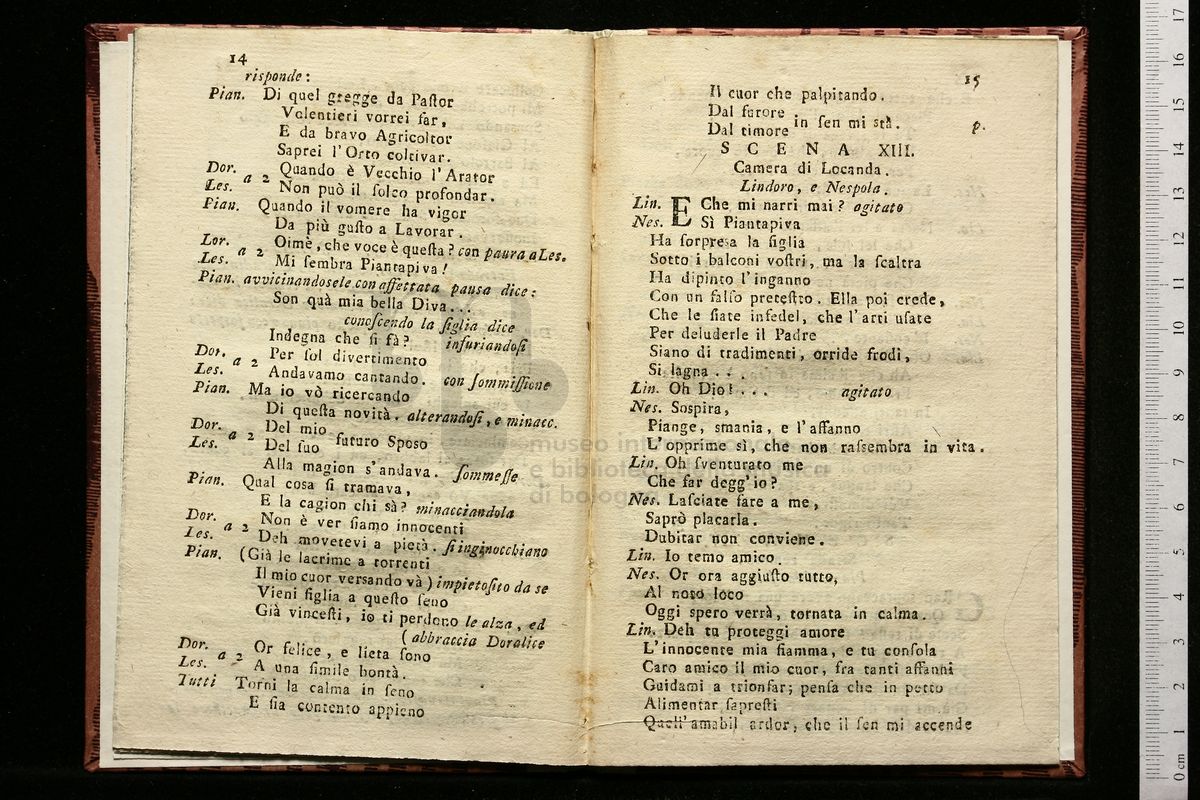 14
risponde:
Pian. Di quel gregge da Paſtor
Volentieri vorrei far,
E da bravo Agricoltor
Saprei l'Orto coltivar.
Dor. Les. a 2 Quando è Vecchio l'Arator
Non può il ſolco profondar.
Pian. Quando il vomere ha vigor
Da più guſto a Lavorar.
Lor. Les. a 2 Oimè, che voce è queſta? con paura a Les.
Mi ſembra Piantapiva!
Pian. avvicinandosele con affettata pausa dice:
Son quà mia bella Diva...
conoſcendo la figlia dice
Indegna che ſi fà? infuriandoſi
Dor. Les. a 2 Per ſol divertimento
Andavamo cantando. con ſommiſſione
Pian. Ma io vò ricercando
Di queſta novità. alterandoſi, e minacc.
Dor. Les. a 2 Del mio
Del ſuo futuro Sposo
Alla magion s'andava. ſommeſſe
Pian. Qual cosa ſi tramava,
E la cagion chi sà? minacciandola
Dor. Les. a 2 Non è ver ſiamo innocenti
Deh movetevi a pietà. ſi inginocchiano
Pian. (Già le lacrime a torrenti
Il mio cuor versando và) impietoſito da se
Vieni figlia a queſto ſeno
Già vinceſti, io ti perdono le alza, ed
(abbraccia Doralice
Dor. Les. a 2 Or felice, e lieta ſono
A una ſimile bontà.
Tutti Torni la calma in ſeno
E ſia contento appieno
15
Il cuor che palpitando.
Dal furore
Dal timore in ſen mi stà. p.
SCENA XIII.
Camera di Locanda.
Lindoro, e Nespola.
Lin. E Che mi narri mai? agitato
Nes. Sì Piantapiva
Ha ſorpresa la figlia
Sotto i balconi voſtri, ma la ſcaltra
Ha dipinto l'inganno
Con un falſo preteſtro. Ella poi crede,
Che le ſiate infedel, che l'arti uſate
Per deluderle il Padre
Siano di tradimenti, orride frodi,
Si lagna...
Lin. Oh Dio!... agitato
Nes. Sospira,
Piange, smania, e l'affanno
L'opprime sì, che non raſſembra in vita.
Lin. Oh ſventurato me
Che far degg'io?
Nes. Laſciate fare a me,
Saprò placarla.
Dubitar non conviene.
Lin. Io temo amico.
Nes. Or ora aggiuſto tutto,
Al noto loco
Oggi spero verrà, tornata in calma.
Lin. Deh tu proteggi amore
L'innocente mia fiamma, e tu conſola
Caro amico il mio cuor, fra tanti affanni
Guidami a trionfar; penſa che in petto
Alimentar ſapreſti
Quell'amabil ardor, che il ſen mi accende
museo internazionale
e biblioteca della musica
di bologna
0 cm 1 2 3 4 5 6 7 8 9 10 11 12 13 14 15 16 17